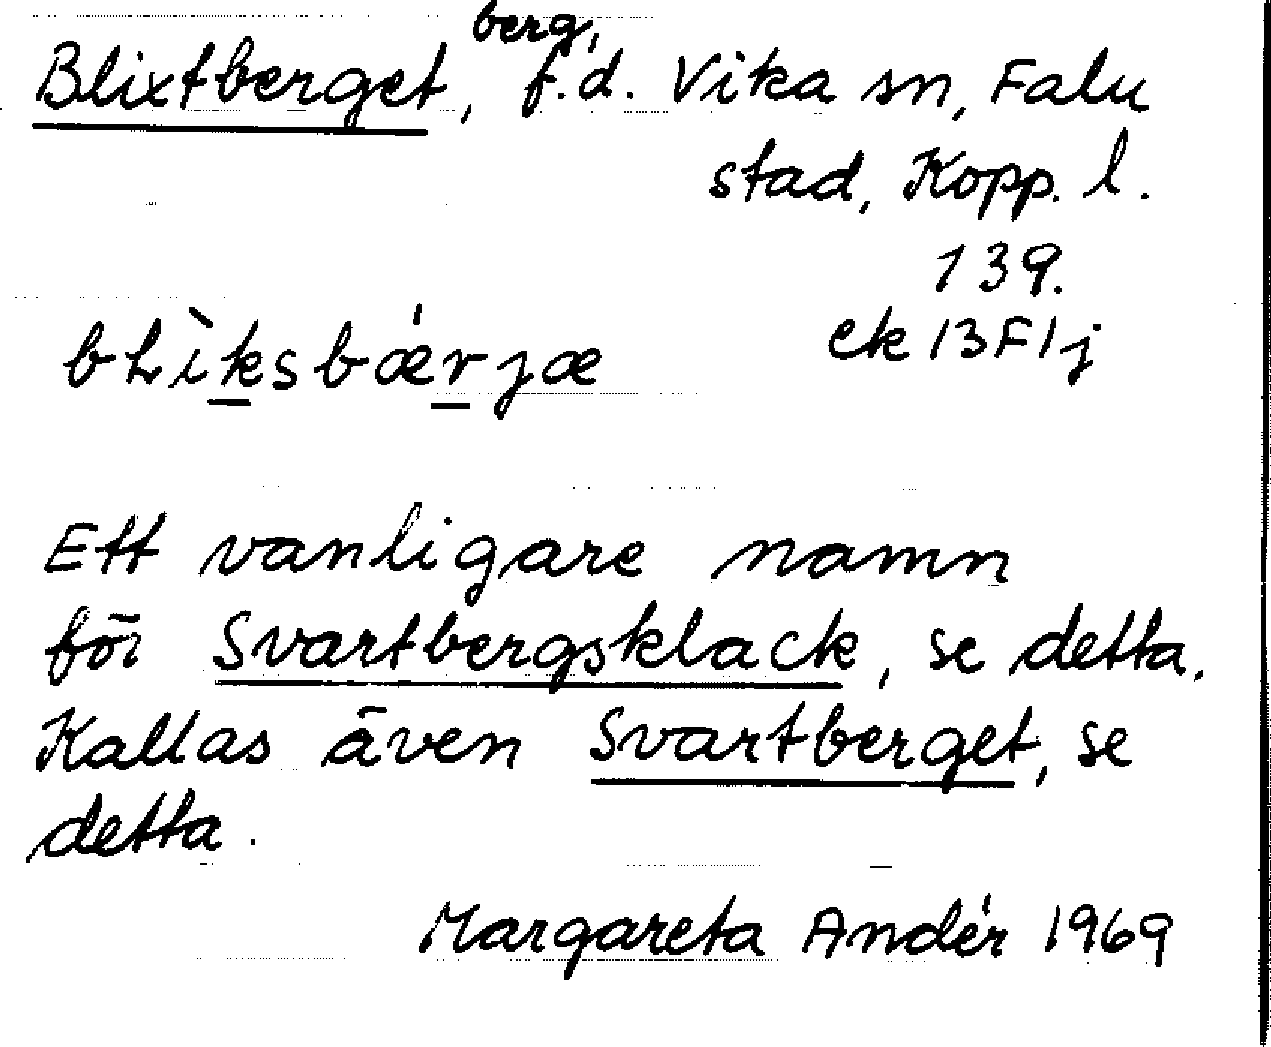 Blixtberget, berg, f.d. Vika sn, Falu
stad, Kopp. l.
139.
ek 13F1j
bʟìksbǽrjæ
Ett vanligare namn
för Svartbergsklack, se detta.
Kallas även Svartberget, se
detta.
Margareta Andér 1969